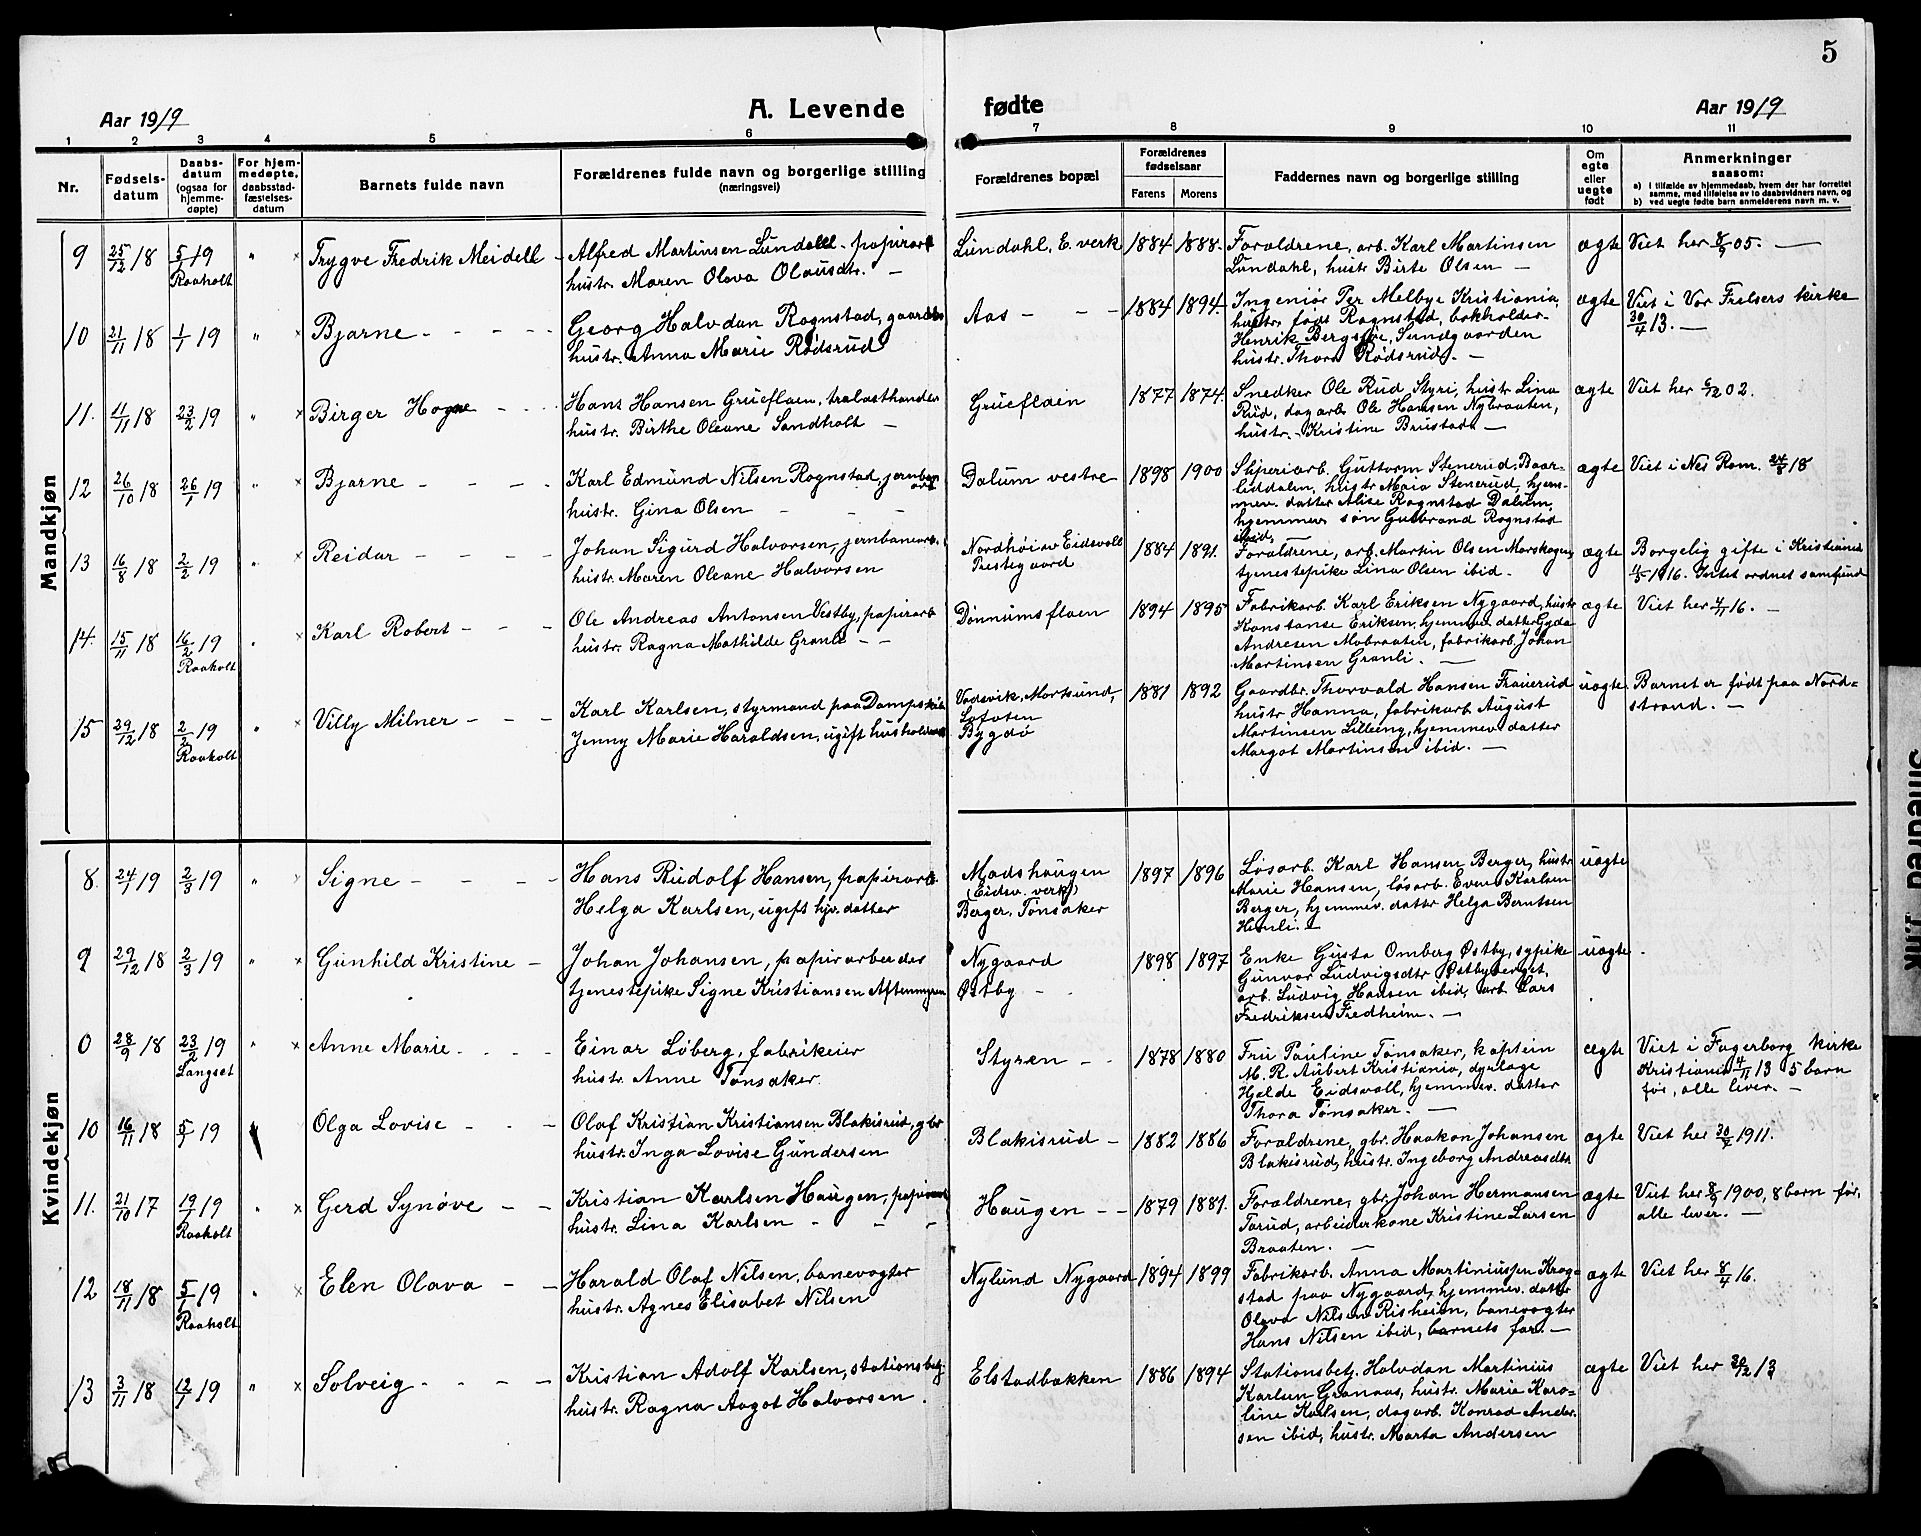 5
Aar 1919
A. Levende
fødte
Aar 1919
1 2 3 4 5 6 7 8 9 10 11
Nr.
Fødsels-
datum
Daabs-
datum
(ogsaa for
hjemme-
døpte)
For hjem-
medøpte,
daabsstad-
fæstelses-
datum
Barnets fulde navn
Forældrenes fulde navn og borgerlige stilling
(næringsvei)
Forældrenes bopæl
Forældrenes
fødselsaar
Farens Morens
Faddernes navn og borgerlige stilling
Om
egte
eller
uegte
født
Anmerkninger
saasom:
a) i tilfælde av hjemmedaab, hvem der har forrettet
samme, med tilføielse av to daabsvidners navn, og
b) ved uegte fødte barn anmelderens navn m. v.
Mandkjøn
9 25/12 18 5/1 19 " × Trygve Fredrik Meidell
Raaholt
Alfred Martinsen Lundahl - papirarb
hustr. Maren Olava Olausdtr. —
Lundahl, E. verk 1884 1888.
Forældrene, arb. Karl Martinsen
Lundahl, hustr Birte Olsen —
ægte Viet her 8/9 05. —
10 21/11 18 1/1 19 " × Bjarne - - - -
Georg Halvdan Rognstad, gaardbr
hustr. Anna Marie Rødsrud
Aas - - - 1884 1894.
Ingeniør Per Melbye Kristiania,
hustr. født Rognstad, bokholder
Henrik Bergsjøe, Sundgaarden
hustr. Thora Rødsrud. —
ægte Viet i Vor Frelsers kirke
30/4 13. —
11. 4/11 18 23/2 19 " × Birger Hogne - - -
Hans Hansen Grueflaen, trælasthandler
hustr. Birthe Oleane Sandholt —
Grueflaen 1877 1874.
Snedker Ole Rud Styri, hustr Lina
Rud, dagarb Ole Hansen Nybraaten,
hustr. Kristine Brustad. —
ægte Viet her 6/12 02.
12 26/10 18 26/1 19 " × Bjarne - - - -
Karl Edmund Nilsen Rognstad, jernban
arb
hustr. Gina Olsen - - -
Dalum vestre 1898 1900
Sliperiarb. Guttorm Stenerud, Baar-
liddalen, hustr Maia Stenerud, hjem-
mev. datter Alise Rognstad Dalum,
hjemmev søn Gulbrand Rognstad
ibid,
ægte Viet i Nes Rom. 24/8 18
13 16/8 18 2/2 19 " × Reidar - - - -
Johan Sigurd Halvorsen, jernbanearb.
hustr. Maren Oleane Halvorsen
Nordhøiav Eidsvoll
Prestegaard
1884 1891.
Forældrene, arb. Martin Olsen Morskogen,
tjenestepike Lina Olsen ibid.
ægte Borgelig gifte i Kristiania
4/5 1916. Intet ordnet samfund
14. 15/11 18 16/2 19 " × Karl Robert - - -
Raaholt
Ole Andreas Antonsen Vestby, papirarb
hustr. Ragna Mathilde Granli - -
Dønnumsflaen 1894 1895
Fabrikarb. Karl Eriksen Nygaard, hustr
Konstanse Eriksen, hjemmev datter Gyda
Andresen Mobraaten, fabrikarb. Johan
Martinsen Granli. —
ægte Viet her 4/11 16. —
15 29/12 18 2/2 19 " × Villy Milner - - -
Raaholt
Karl Karlsen, styrmand paa Dampskib
Jenny Marie Haraldsen, ugift husholderske
Vadsvik, Mortsund,
Lofoten
Bygdø
1881 1892
Gaardbr. Thorvald Hansen Frauerud
hustr Hanna, fabrikarb. August
Martinsen Lilleeng, hjemmev. datter
Margot Martinsen ibid. —
uægte Barnet er født paa Nord=
strand. —
Kvindekjøn
8. 24/1 19 2/3 19 " × Signe - - - -
Hans Rudolf Hansen, papirarb.
Helga Karlsen, ugift hjv. datter
Madshaugen
(Eidsv. verk)
Berger, Tønsaker
1897 1896
Løsarb. Karl Hansen Berger, hustr
Marie Hansen, løsarb. Even Karlsen
Berger, hjemmev. datter Helga Berntsen
Hemli. —
uægte
9 29/12 18 2/3 19 " × Gunhild Kristine -
Johan Johansen, papirarbeider
tjenestepike Signe Kristiansen Aftenmyren
Nygaard
Østby -
1898 1897
Enke Gusta Omberg Østby, sypike
Gunvor Ludvigsdtr Østbyberget,
arb. Ludvig Hansen ibid, arb. Lars
Fredriksen Fredheim. —
uægte
0 28/9 18 23/2 19 " × Anne Marie. - - -
Langset
Einar Løberg, fabrikeier
hustr. Anne Tønsaker.
Styren - - 1878 1880
Fru Pauline Tønsaker, kaptein
M. R. Aubert Kristiania, dyrlæge
Helde Eidsvoll, hjemmev. datter
Thora Tønsaker. —
ægte Viet i Fagerborg kirke
Kristiania 4/11 13 5 barn
før, alle liver. —
10 16/11 18 5/1 19 Olga Lovise - - -
Olaf Kristian Kristiansen Blakisrud, gbr
hustr. Inga Lovise Gundersen
Blakisrud - 1882 1886
Forældrene, gbr. Haakon Johansen
Blakisrud, hustr. Ingeborg Andreasdtr.
ægte Viet her 30/7 1911.
11. 21/10 17 19/1 19 " × Gerd Synøve - -
Raaholt
Kristian Karlsen Haugen, papirarb
hustr. Lina Karlsen - - -
Haugen - - 1879 1881.
Forældrene, gbr. Johan Hermansen
Tarud, arbeiderkone Kristine Larsen
Braaten. —
ægte Viet her 8/9 1900, 8 barn før,
alle lever. —
12 18/11 18 5/1 19 " × Elen Olava - -
Raaholt
Harald Olaf Nilsen, banevogter
hustr. Agnes Elisabet Nilsen
Nylund Nygaard 1894 1899
Fabrikarb. Anna Martiniussen Krog=
stad paa Nygaard, hjemmev. datter
Olava Nilsen Risheim, banevogter
Hans Nilsen ibid, barnets far. —
ægte Viet her 8/4 16.
13 3/11 18 12/1 19 " × Solveig - - - -
Kristian Adolf Karlsen, stationsbetj.
hustr. Ragna Aagot Halvorsen.
Elstadbakken 1886 1894
Stationsbetj. Halvdan Martinius
Karlsen Granaas, hustr. Maria Karo=
line Karlsen, dagarb. Konrad Ander.
sen ibid, hustr. Marta Andersen
ægte Viet her 30/12 13